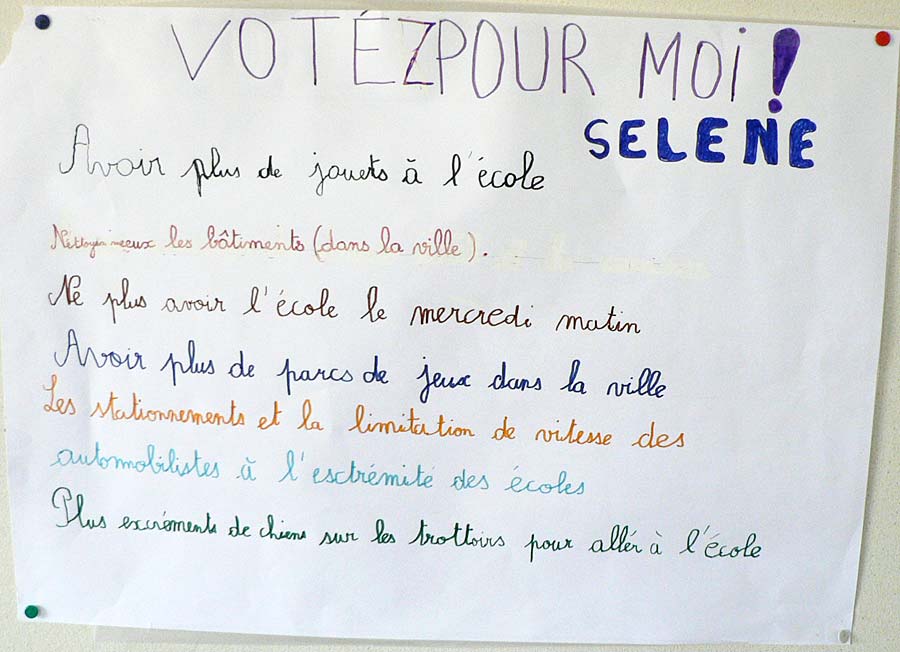 VOTÉZ POUR MOi !
SELENE
Avoir plus de jouets à l'école
Nettoyer mieux les bâtiments (dans la ville).
Ne plus avoir l'école le mercredi matin
Avoir plus de parcs de jeux dans la ville
Les stationnements et la limitation de vitesse des
automobilistes à l'esctrémité des écoles
Plus excréments de chiens sur les trottoirs pour allér à l'école